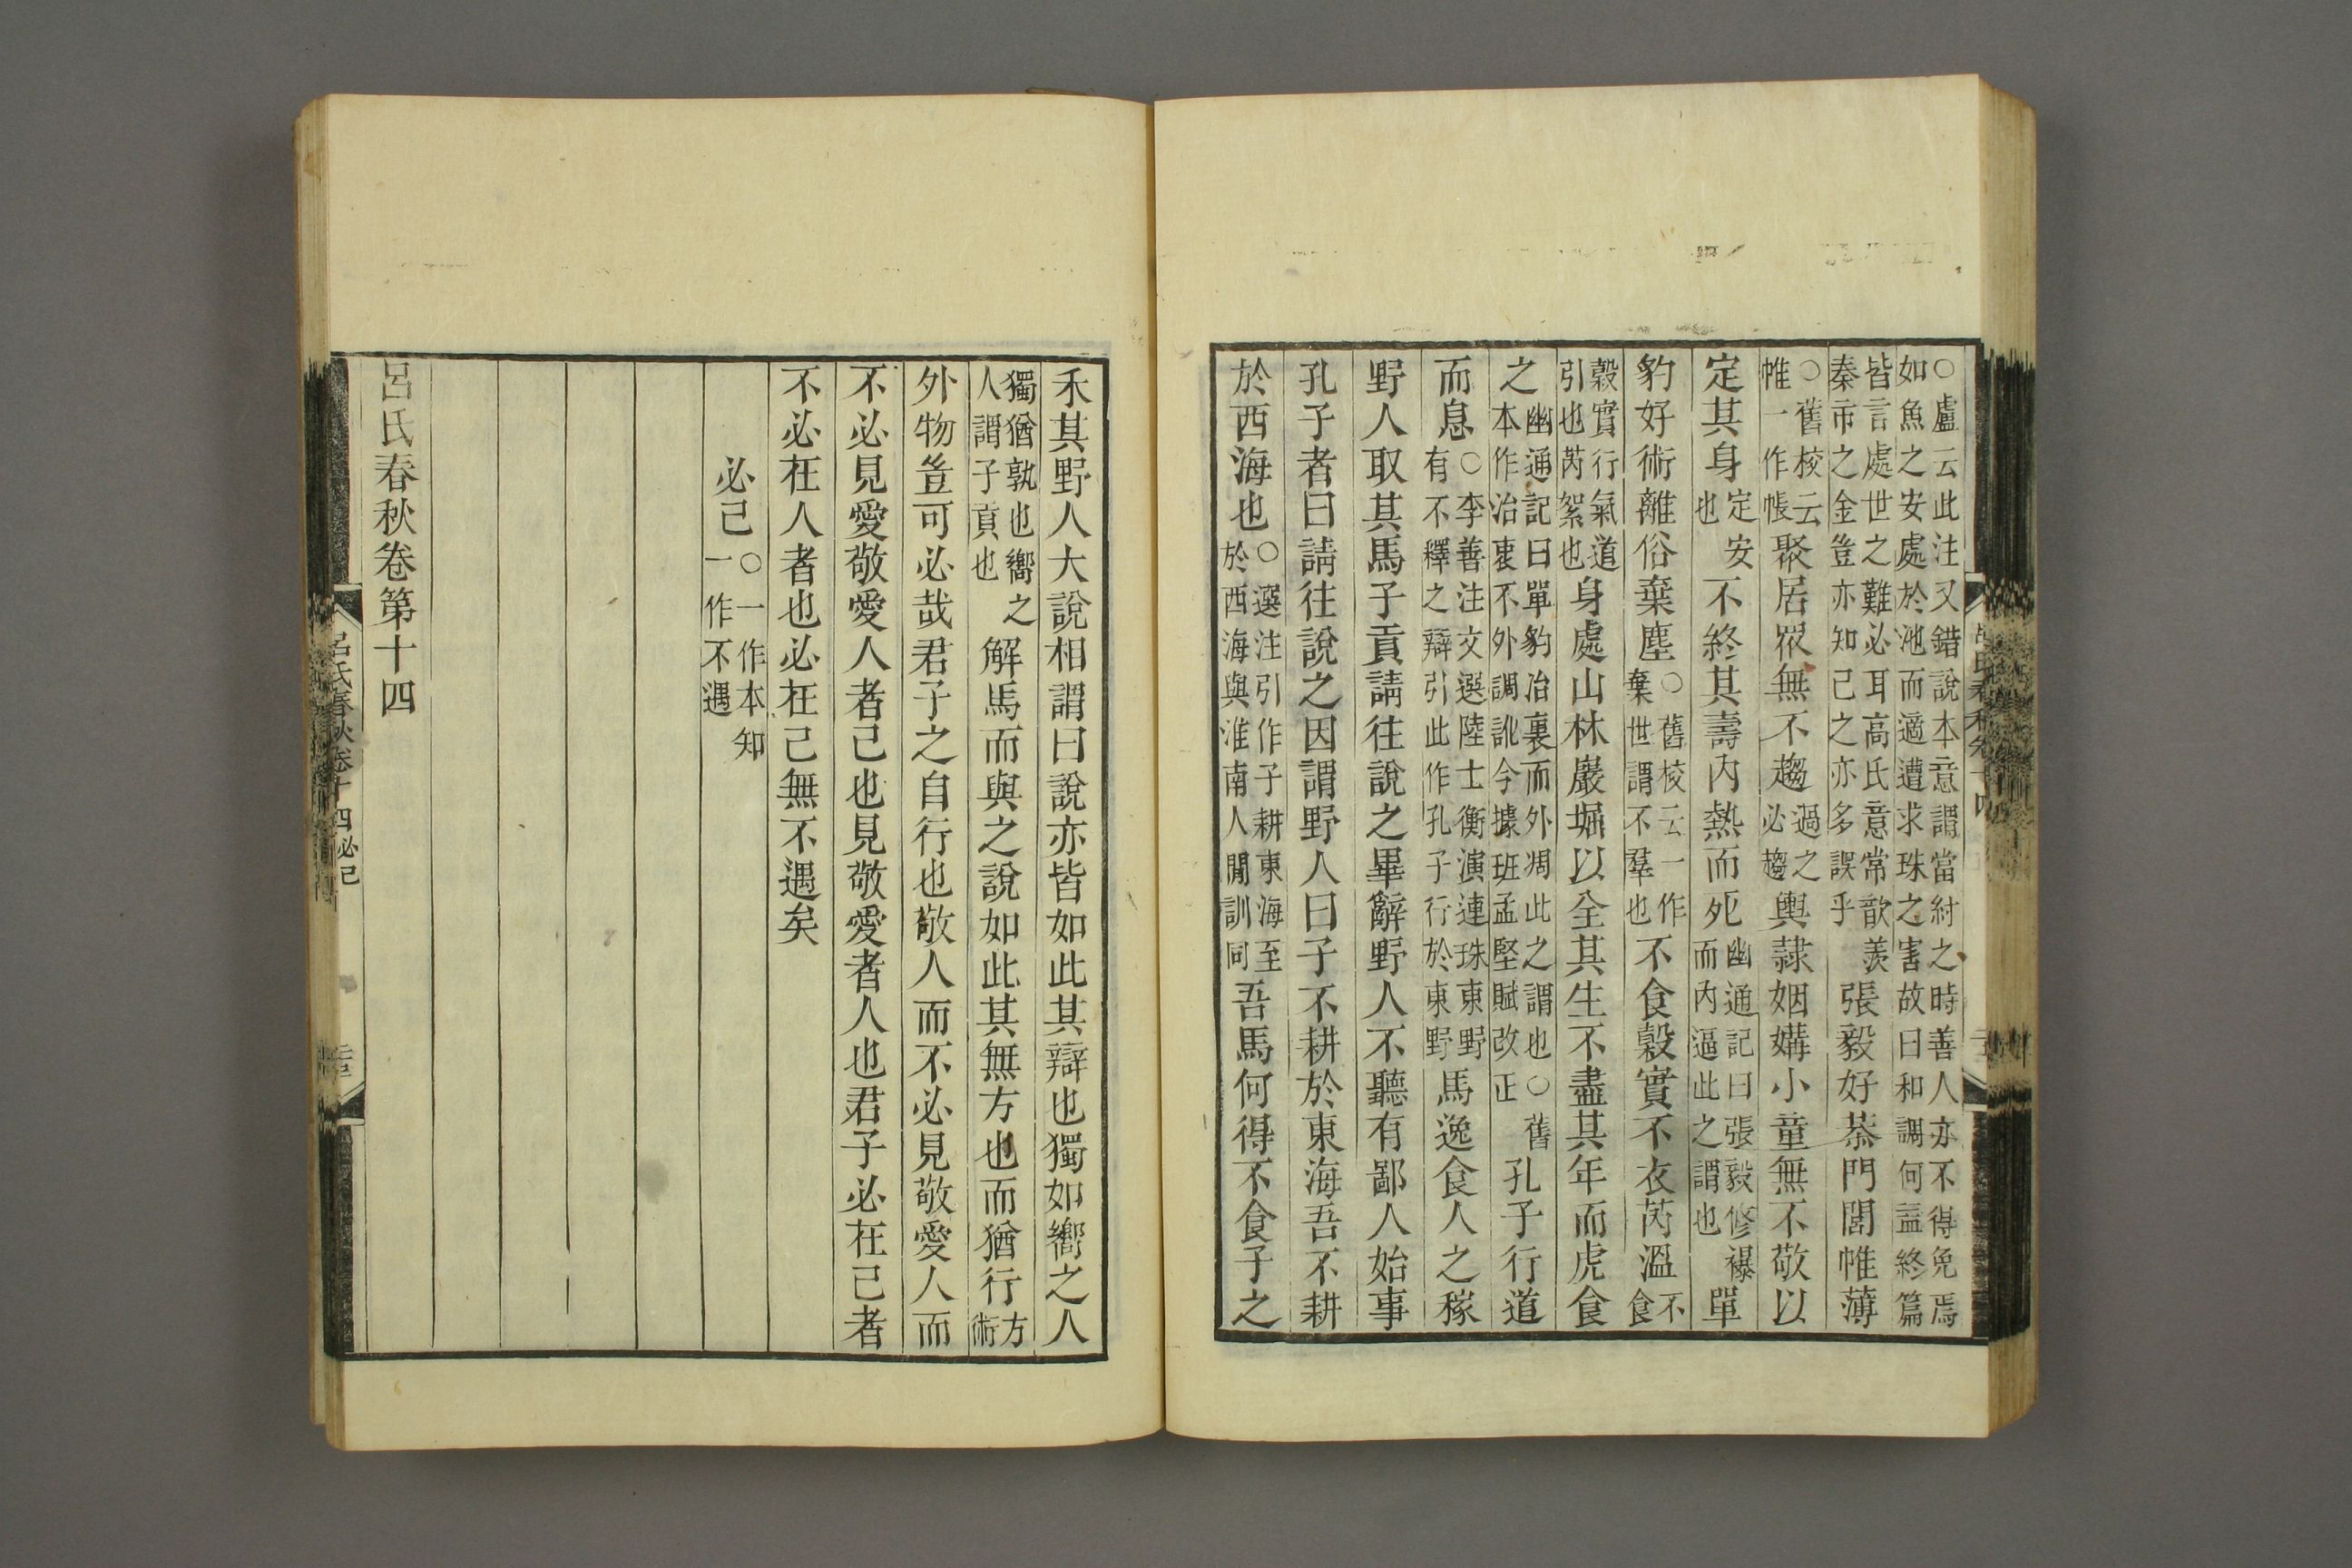 ○盧云此注又錯說本意謂當紂之時善人亦不得免焉
如魚之安處於池而適遭求珠之害故曰和調何益終篇
皆言處世之難必耳高氏意常歆羨
秦市之金豈亦知己之亦多誤乎
張毅好恭門閭帷薄
○舊校云
帷一作帳
聚居眾無不趨
過之
必趨
輿隸姻媾小童無不敬以
定其身
定安
也
不終其壽內熱而死
幽通記曰張毅修襮
而內逼此之謂也
單
豹好術離俗棄塵
○舊校云一作
棄世謂不羣也
不食穀實不衣芮溫
不
食
穀實行氣道
引也芮絮也
身處山林巖堀以全其生不盡其年而虎食
之
幽通記曰單豹治裏而外凋此之謂也○舊
本作治衷不外調訛今據班孟堅賦改正
孔子行道
而息
○李善注文選陸士衡演連珠東野
有不釋之辯引此作孔子行於東野
馬逸食人之稼
野人取其馬子貢請往說之畢辭野人不聽有鄙人始事
孔子者曰請往說之因謂野人曰子不耕於東海吾不耕
於西海也
○選注引作子耕東海至
於西海與淮南人閒訓同
吾馬何得不食子之
禾其野人大說相謂曰說亦皆如此其辯也獨如嚮之人
獨猶孰也嚮之
人謂子貢也
解馬而與之說如此其無方也而猶行
方
術
外物豈可必哉君子之自行也敬人而不必見敬愛人而
不必見愛敬愛人者己也見敬愛者人也君子必在己者
不必在人者也必在己無不遇矣
必己
○一作本知
一作不遇
呂氏春秋卷第十四
呂氏春秋卷十四必己